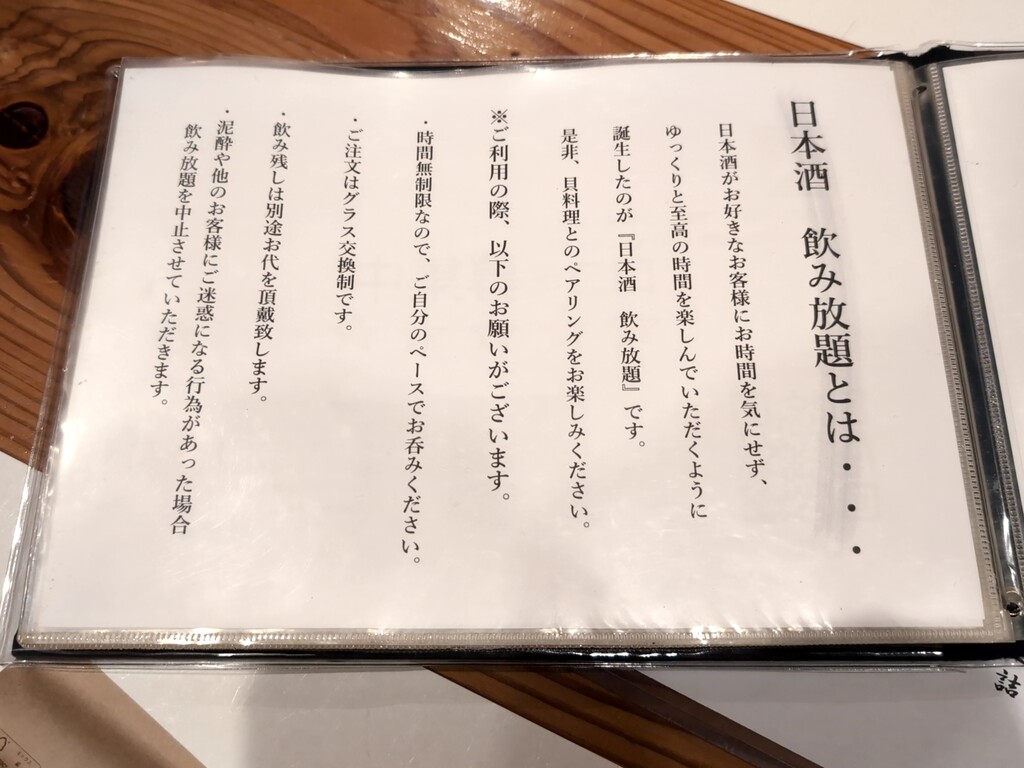 日本酒 飲み放題とは・・・
日本酒がお好きなお客様にお時間を気にせず、
ゆっくりと至高の時間を楽しんでいただくように
誕生したのが『日本酒 飲み放題』です。
是非、貝料理とのペアリングをお楽しみください。
※ご利用の際、以下のお願いがございます。
・時間無制限なので、ご自分のペースでお呑みください。
・ご注文はグラス交換制です。
・飲み残しは別途お代を頂戴致します。
・泥酔や他のお客様にご迷惑になる行為があった場合
飲み放題を中止させていただきます。
詰